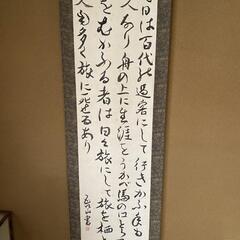 日は百代の過客にして行きかふ年も
人なり舟の上に生涯をうかべ馬の口とら
をむかふる者は日々旅にして旅を栖と
人も多く旅に死せるあり